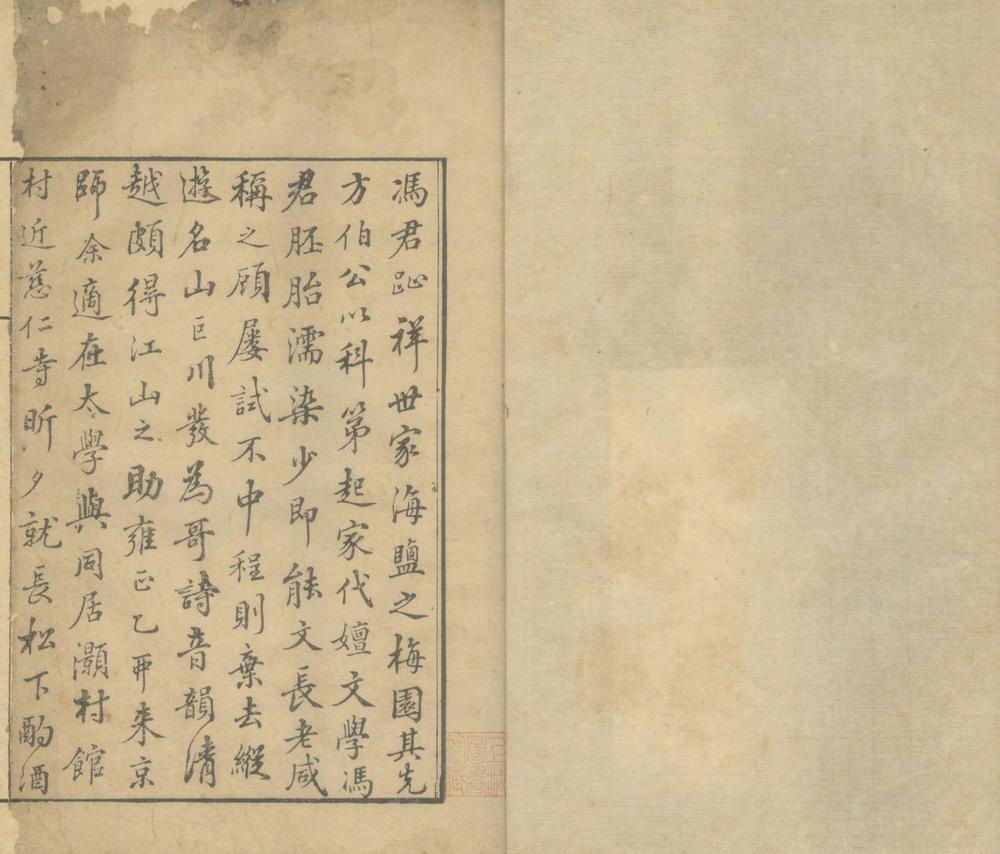 馮君跐祥世家海鹽之梅園其先
方伯公以科第起家代嬗文學馮
君胚胎濡染少即能文長老咸
稱之顧屢試不中程則棄去縱
遊名山巨川發為哥詩音韻清
越頗得江山之助雍正乙丣来京
師余適在太學與同居灝村館
村近慈仁寺昕夕就長松下酌酒